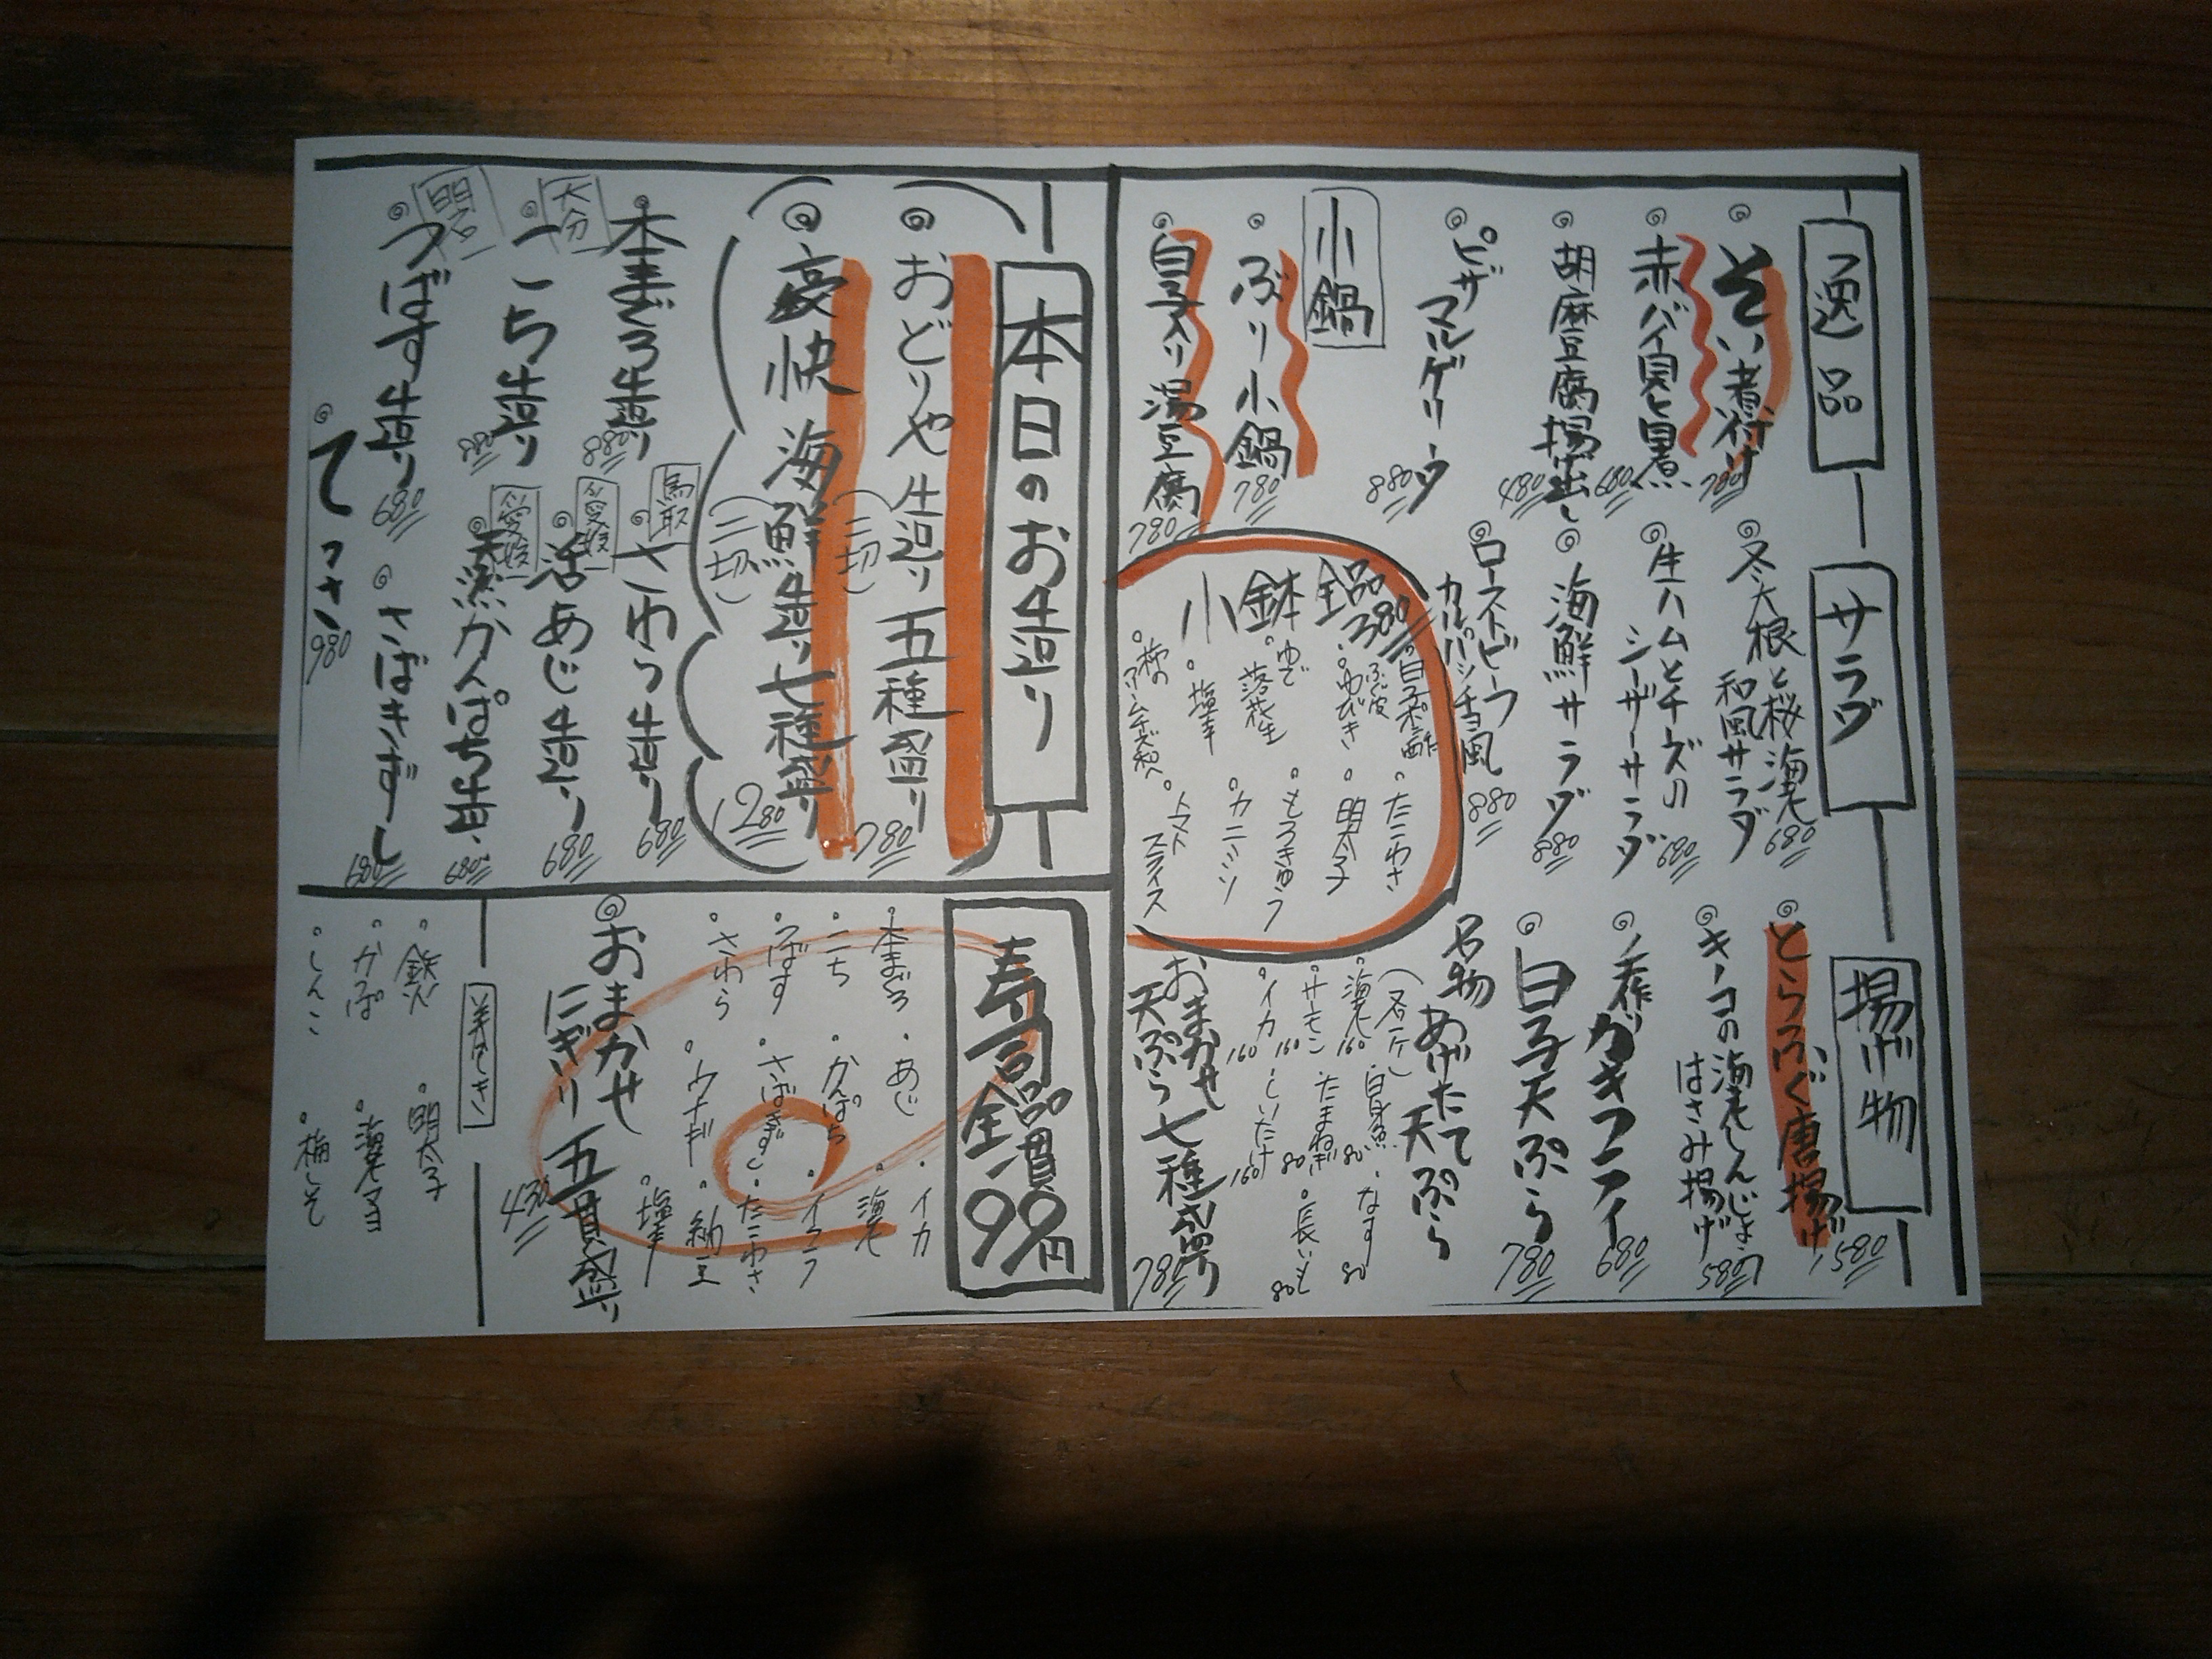 逸品
そい煮付け 780
赤バイ貝と煮 680
胡麻豆腐揚出し 480
ピザ
マルゲリータ 880
小鍋
ぶり小鍋 780
白子入り湯豆腐 780
サラダ
冬大根と桜海老
和風サラダ 680
生ハムとチーズの
シーザーサラダ 680
海鮮サラダ 880
ローストビーフ
カルパッチョ風 880
小鉢 全品380
白子ポン酢
ふぐ皮
ゆびき
ゆで
落花生
塩辛
梅の
クリームチーズ
たこわさ
明太子
もろきゅう
カニミソ
トマト
スライス
揚げ物
とらふぐ唐揚げ 1580
キーコの海老しんじょう
はさみ揚げ 580
カキフライ 680
白子天ぷら 780
名物 あげたて
天ぷら
(各一ケ)
海老 160
サーモン 160
イカ 160
白身魚 80
たまねぎ 80
しいたけ 160
なす 80
長いも 80
おまかせ
天ぷら七種盛り 780
本日のお造り
おどりや生造り五種盛り 780
(二切)
豪快海鮮生造り七種盛り 1280
(二切)
本まぐろ生造り 880
大分
こち生造り 880
明石
つばす生造り 680
てっさ 980
鳥取
さわら生造り 680
愛媛
活あじ生造り 680
愛媛
天然かんぱち生造り 680
さばきずし 680
寿司全品一貫99円
本まぐろ
こち
つばす
さわら
あじ
かんぱち
さばきずし
ウナギ
イカ
海老
イクラ
たこわさ
納豆
塩辛
おまかせ
にぎり五貫盛り 430
巻き
鉄火
かっぱ
しんこ
明太子
海老マヨ
梅しそ